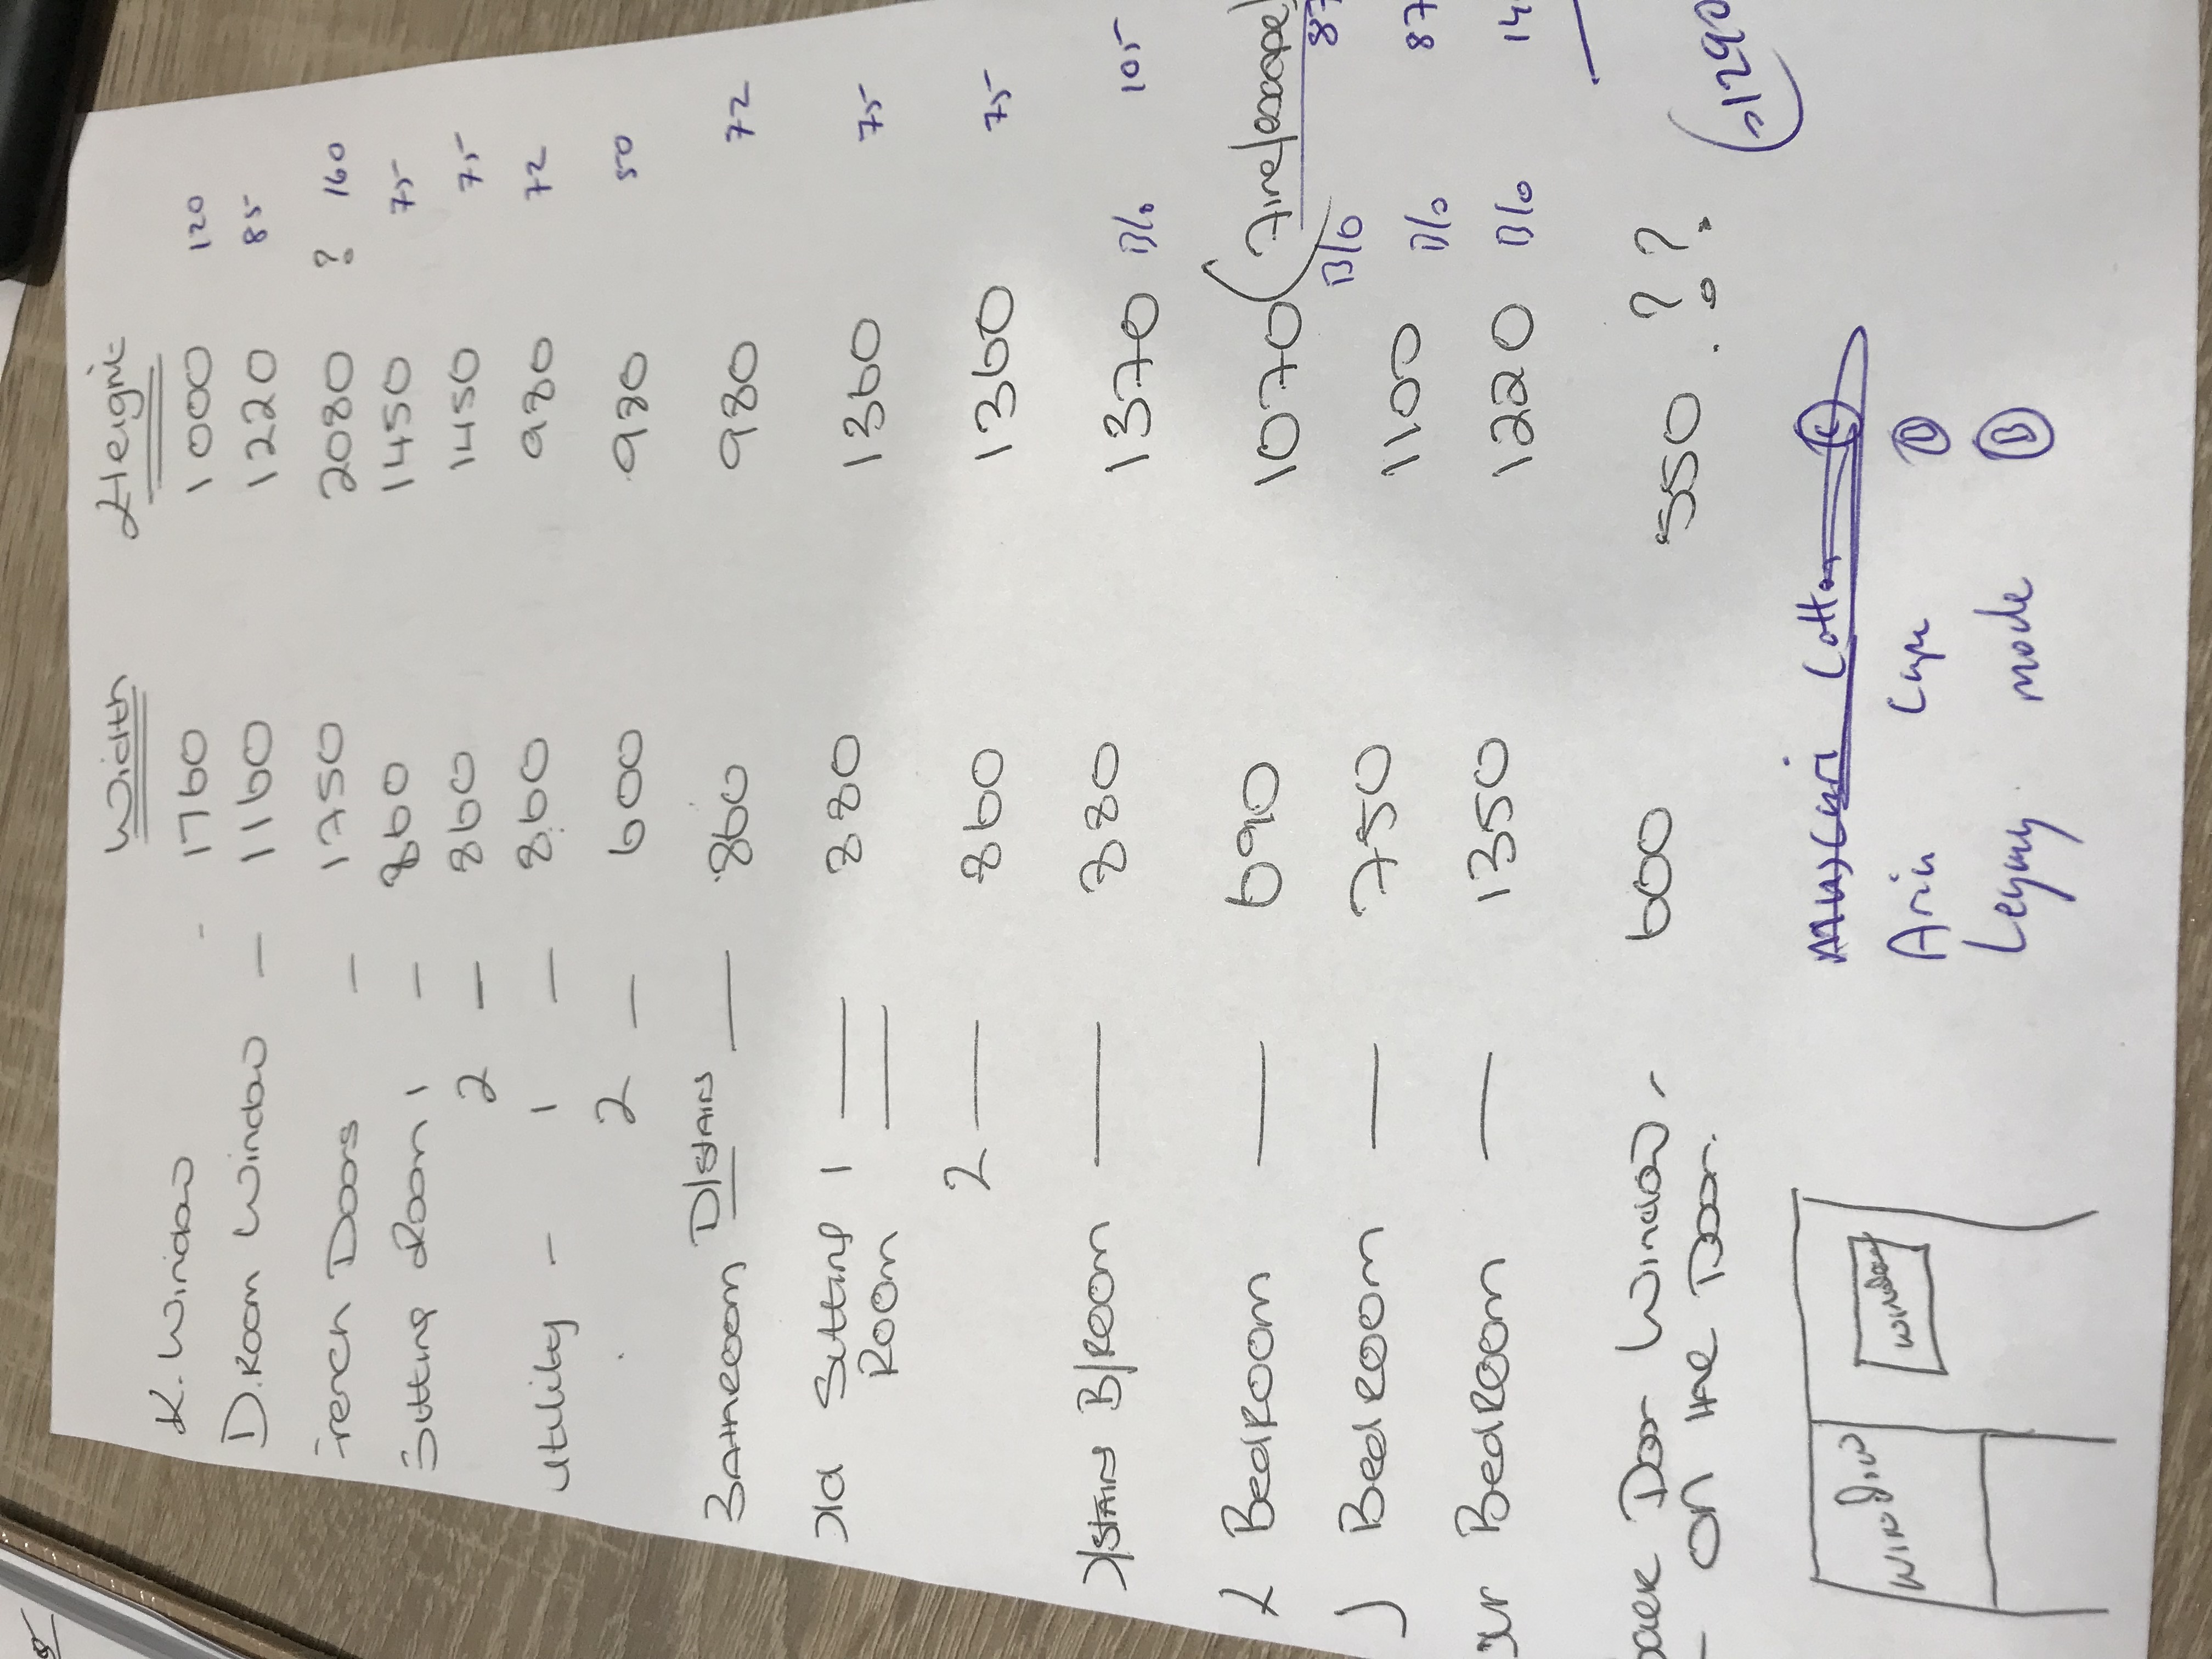 Width Height
K. Window - 1760 1000 120
D. Room Window - 1160 1220 85
French Doors - 1750 2080 ? 160
Sitting Room 1 - 860 1450 75
2 - 860 1450 75
Utility - 1 - 860 980 72
2 - 600 980 50
Bathroom D/stairs - 860 980 72
Old Sitting 1 880 1360 75
Room
2 - 860 1360 75
/stairs B/Room - 880 1370 B/o 105
L Bedroom - 690 1070 (Fire/escape)
B/o 87
J Bedroom - 750 1100 B/o 87
Our Bedroom - 1350 1220 B/o 14
Back Door Window - 600 550 . ? ?
- on the Door. ?
1290
Cotton
Window window